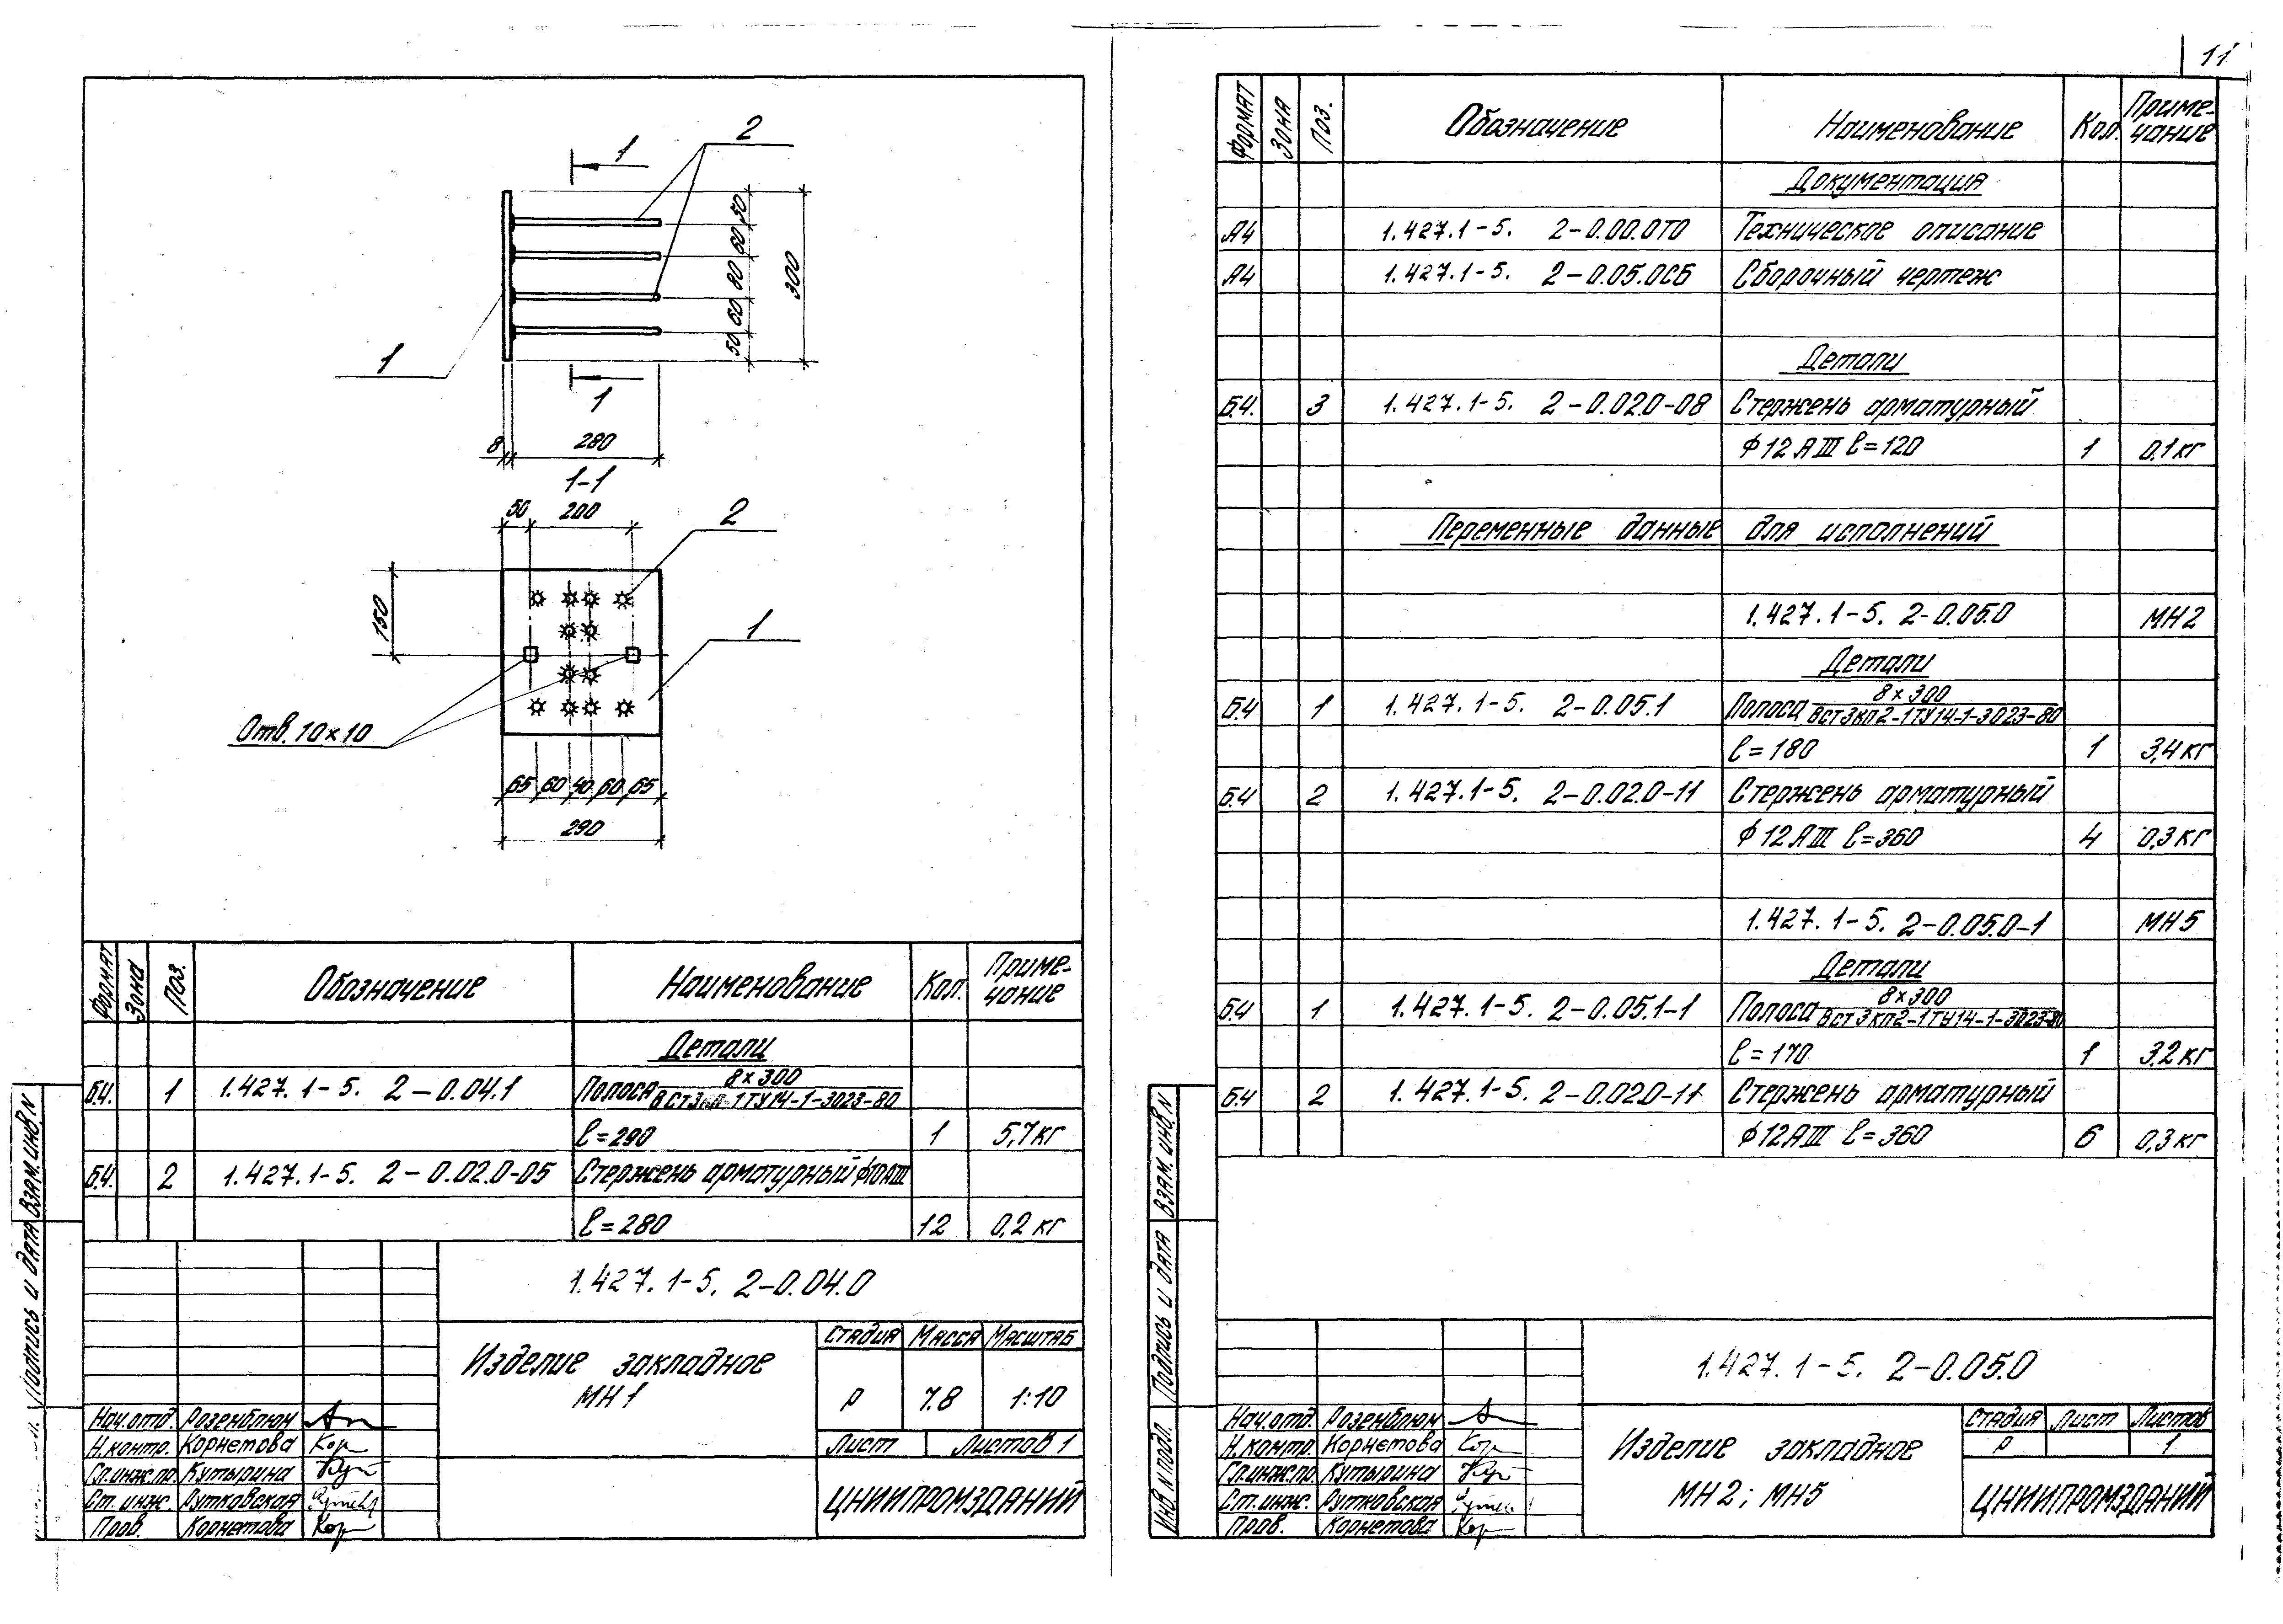 11
1
2
50
60
80
60
50
300
1
1
8
280
1-1
50
200
2
150
1
Отв. 10×10
65 60 40 60 65
290
Формат Зона Поз. Обозначение Наименование Кол. Примечание
Детали
Б.4. 1 1.427.1-5. 2-0.04.1 Полоса 8×300
l=290 1 5,7 кг
Б.4. 2 1.427.1-5. 2-0.02.0-05 Стержень арматурный ф10АIII
l=280 12 0,2 кг
1.427.1-5. 2-0.04.0
Изделие закладное
МН1
Стадия Масса Масштаб
Р 7.8 1:10
Лист Листов 1
ЦНИИПРОМЗДАНИЙ
Нач.отд. Розенблюм
Н.контр. Корнетова Кор
Гл.инж.пр. Кутырина Кут
Ст. инж. Рутковская
Пров. Корнетова Кор
Подпись и дата Взам.инв.N
Формат Зона Поз. Обозначение Наименование Кол. Приме-
чание
Документация
А4 1.427.1-5. 2-0.00.0ТО Техническое описание
А4 1.427.1-5. 2-0.05.0СБ Сборочный чертеж
Детали
Б.4. 3 1.427.1-5. 2-0.02.0-08 Стержень арматурный
ф12АIII l=120 1 0,1 кг
Переменные данные для исполнений
1.427.1-5. 2-0.05.0 МН2
Детали
Б.4 1 1.427.1-5. 2-0.05.1 Полоса 8×300
ВСт3кп2-1ТУ14-1-3023-80
l=180 1 3,4 кг
Б.4 2 1.427.1-5. 2-0.02.0-11 Стержень арматурный
ф12АIII l=360 4 0,3 кг
1.427.1-5. 2-0.05.0-1 МН5
Детали
Б.4 1 1.427.1-5. 2-0.05.1-1 Полоса 8×300
ВСт3кп2-1ТУ14-1-3023-80
l=170 1 3.2 кг
Б.4 2 1.427.1-5. 2-0.02.0-11 Стержень арматурный
ф12АIII l=360 6 0,3 кг
1.427.1-5. 2-0.05.0
Изделие закладное
МН2; МН5
Стадия Лист Листов
Р 1
ЦНИИПРОМЗДАНИЙ
Нач.отд. Розенблюм
Н.контр. Корнетова Кор
Гл.инж.пр. Кутырина Кут
Ст.инж. Рутковская
Пров. Корнетова Кор
Инв.N подл. Подпись и дата Взам.инв.N